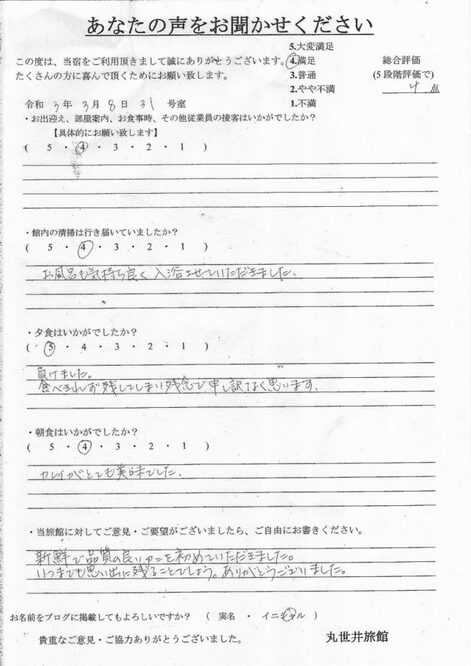 あなたの声をお聞かせください
この度は、当宿をご利用頂きまして誠にありがとうございます。
たくさんの方に喜んで頂くためにお願い致します。
5.大変満足
4.満足
3.普通
2.やや不満
1.不満
総合評価
(5段階評価で)
4 点
令和 3年 3月 8日 31 号室
・お出迎え、部屋案内、お食事時、その他従業員の接客はいかがでしたか?
【具体的にお願い致します】
( 5 ・ 4 ・ 3 ・ 2 ・ 1 )
・館内の清掃は行き届いていましたか?
( 5 ・ 4 ・ 3 ・ 2 ・ 1 )
お風呂も気持ち良く入浴させていただきました。
・夕食はいかがでしたか?
( 5 ・ 4 ・ 3 ・ 2 ・ 1 )
負けました。
食べきれず残してしまい残念で申し訳なく思います。
・朝食はいかがでしたか?
( 5 ・ 4 ・ 3 ・ 2 ・ 1 )
カレイがとても美味でした。
・当旅館に対してご意見・ご要望がございましたら、ご自由にお書きください。
新鮮で品質の良いカニを初めていただきました。
いつまでも思い出に残ることでしょう。ありがとうございました。
お名前をブログに掲載してもよろしいですか? ( 実名 ・ イニシャル )
貴重なご意見・ご協力ありがとうございました。
丸世井旅館